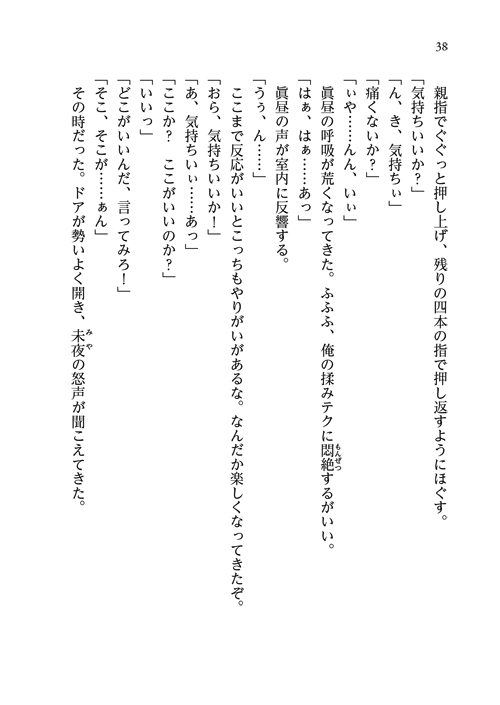 38
親指でぐぐっと押し上げ、残りの四本の指で押し返すようにほぐす。
「気持ちいいか？」
「ん、き、気持ちぃ」
「痛くないか？」
「ぃや……んん、いぃ」
眞昼の呼吸が荒くなってきた。ふふふ、俺の揉みテクに悶絶するがいい。
もんぜつ
「はぁ、はぁ……あっ」
眞昼の声が室内に反響する。
「うぅ、ん……」
ここまで反応がいいとこっちもやりがいがあるな。なんだか楽しくなってきたぞ。
「おら、気持ちいいか！」
「あ、気持ちいぃ……あっ」
「ここか？　ここがいいのか？」
「いいっ」
「どこがいいんだ、言ってみろ！」
「そこ、そこが……ぁん」
その時だった。ドアが勢いよく開き、未夜の怒声が聞こえてきた。
みや